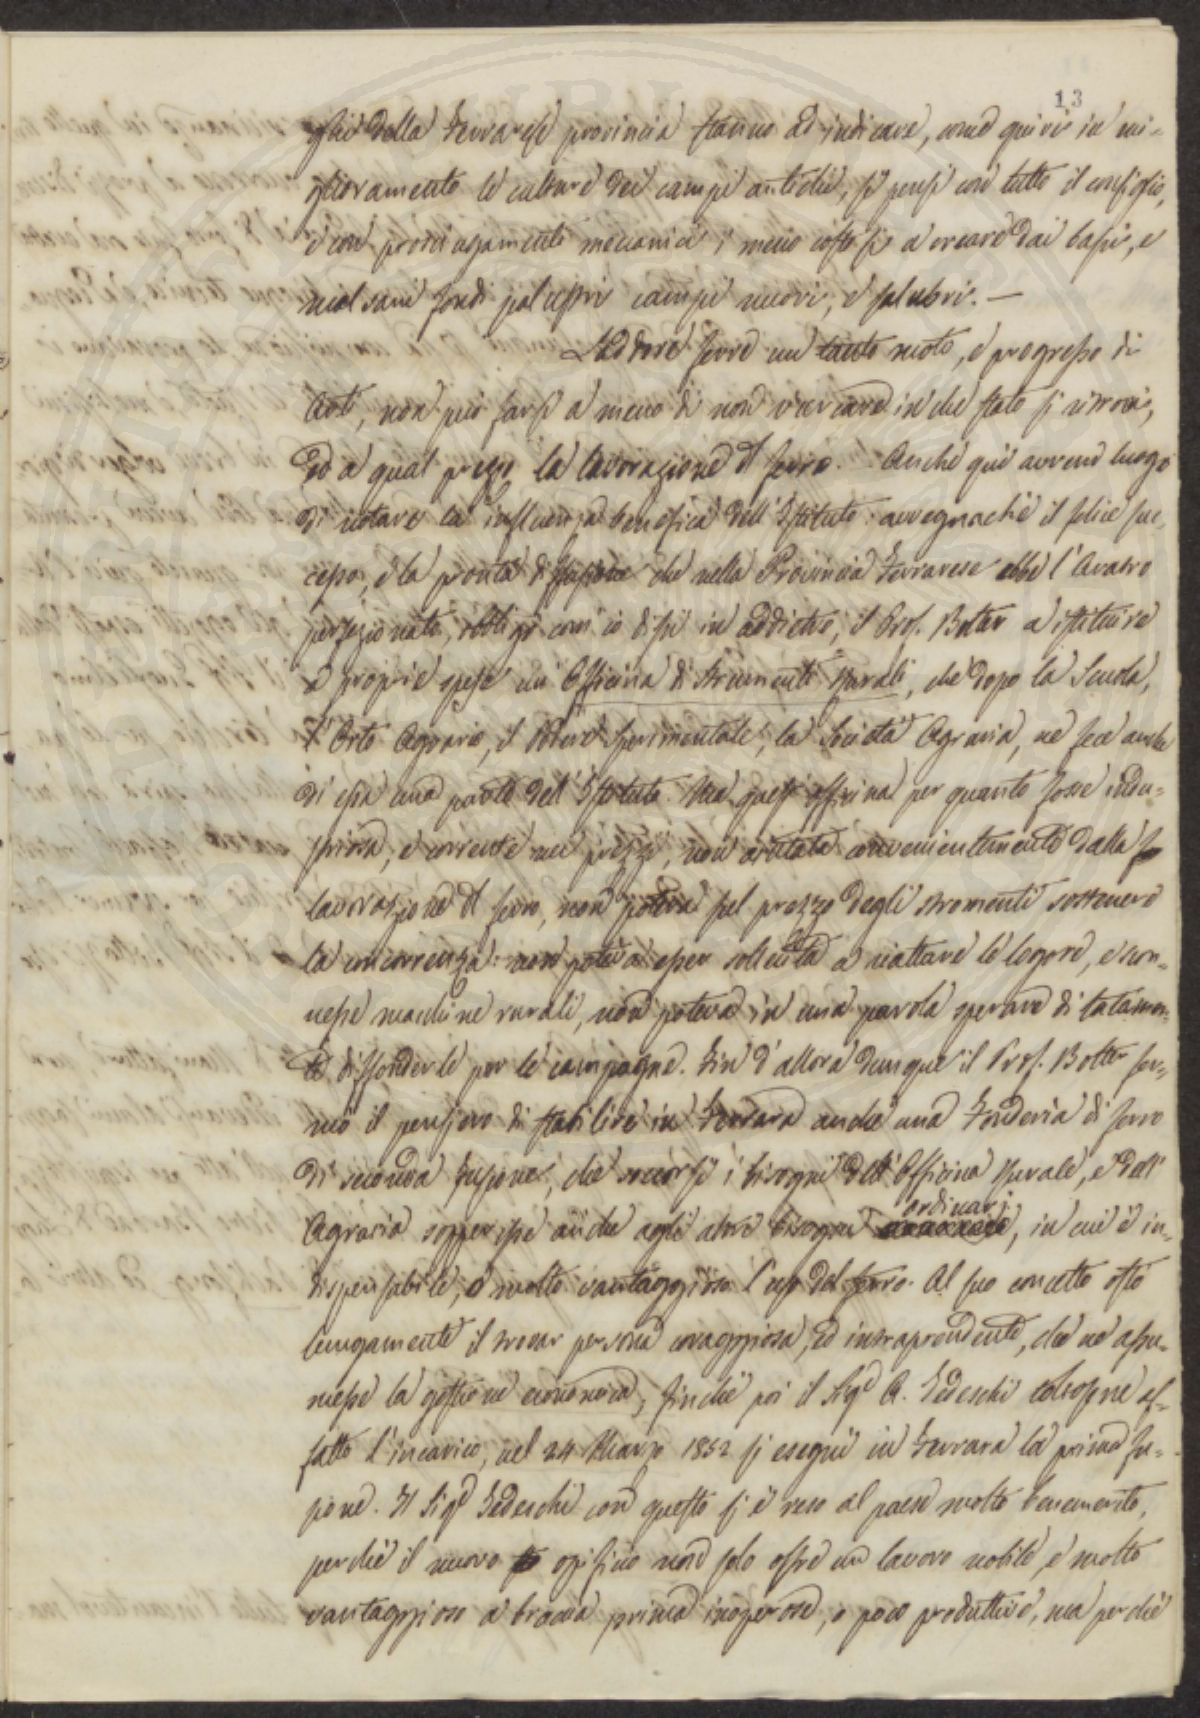 13
ghi della Ferrarese provincia stanno ad indicare, come quivi in mi-
glioramento le culture dei campi antichi, si pensi con tutto il consiglio,
e con prosciugamenti meccanici i meno costosi a creare dai bassi, e
malsani fondi palustri campi nuovi, e salubri. —
Laddove ferve un tanto moto, e progresso di
Arti, non può farsi a meno di non ricercare in che stato si ritrovi,
ed a qual prezzo la lavorazione del ferro. Anche qui avremo luogo
di notare la influenza benefica dell'Istituto: avvegnachè il felice suc-
cesso, e la pronta diffusione che nella Provincia Ferrarese ebbe l'Aratro
perfezionato, obbligò com'io dissi in addietro, il Prof. Botter a istituire
a proprie spese un'Officina di strumenti Rurali, che dopo la Scuola,
l'Orto Agrario, il Podere Sperimentale, la Società Agraria, ne fece anche
di essa una parte dell'Istituto. Ma quest'officina per quanto fosse indu-
striosa, e corrente nei prezzi, non aiutata convenientemente dalla
lavorazione del ferro, non poteva pel prezzo degli stromenti sostenere
la concorrenza: non poteva esser sollecita a riattare le logore, e scon-
nesse macchine rurali, non poteva in una parola sperare di talamen-
te diffonderle per le campagne. Fin d'allora dunque il Prof. Botter for-
mò il pensiero di stabilire in Ferrara anche una Fonderia di ferro
di seconda fusione, che soccorsi i bisogni dell'Officina Rurale, e dell'
Agraria sopperisse anche agli altri bisogni ordinarj, in cui è in-
dispensabile, o molto vantaggioso l'uso del ferro. Al suo concetto ostò
lungamente il trovar persona coraggiosa, ed intraprendente, che ne assu-
messe la gestione economica, finchè poi il Sigr A. Tedeschi toltosene af-
fatto l'incarico, nel 24 Marzo 1852 si eseguì in Ferrara la prima fu-
sione. Il Sigr Tedeschi con questo si è reso al paese molto benemerito,
perchè il nuovo opificio non solo offre un lavoro nobile, e molto
vantaggioso a braccia prima inoperose, o poco produttive, ma perchè